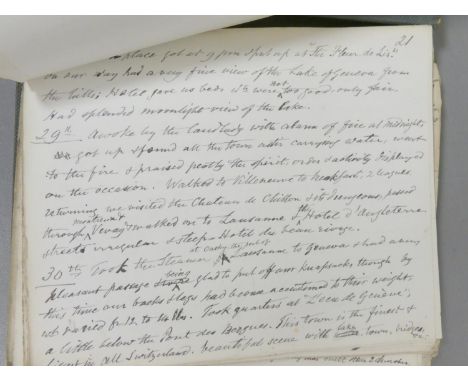 21
place got at 9 pm & put up at "The Fleur de Lis"
on our way had a very fine view of the Lake of Geneva from
the hills, Hotel gave us beds we were not too good only fair.
Had splendid moonlight view of the Lake.
29th Awoke by the Landlady with alarm of fire at midnight,
got up & found all the town astir carrying water, went
to the fire & praised greatly the spirit, order & activity displayed
on the occasion. Walked to Villeneuve to breakfast, 2 leagues,
returning we visited the Chateau de Chillon & its dungeons, passed
through Montreux & Vevay & walked on to Lausanne, Hotel d'Angleterre
streets irregular & steep Hotel des beau rivage.
30th Took the Steamer at Ouchy, the port of Lausanne to Geneva & had a very
pleasant passage being glad to put off our knapsacks though by
this time our backs & legs had become accustomed to their weight,
wh. varied fr. 12 to 14 lbs. Took quarters at "L'ecu de Genève",
a little below the Pont des Bergues. This town is the finest &
in all Switzerland. beautiful scene with lake, town, bridges,